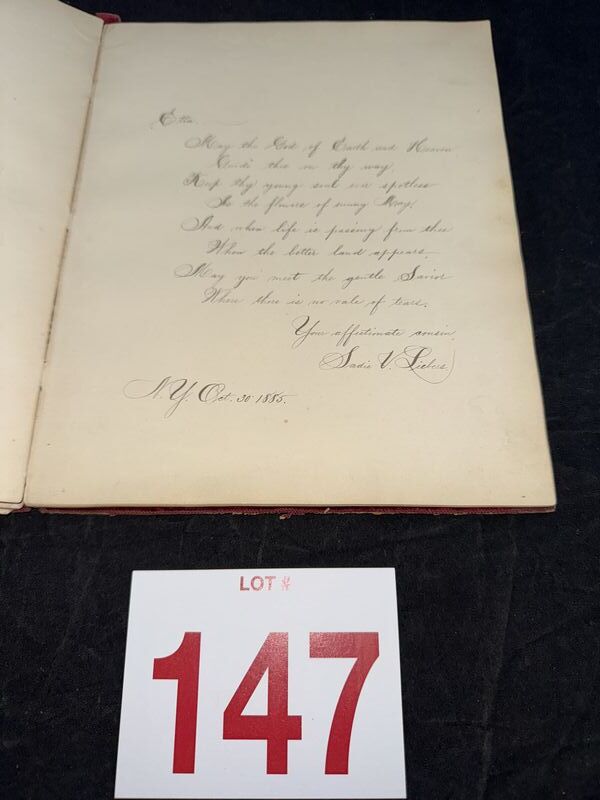 Etta.
May the God of Earth and Heaven
Guide thee on thy way,
Keep thy young soul ever spotless
As the flowers of sunny May,
And when life is passing from thee
When the better land appears.
May you meet the gentle Savior
Where there is no vale of tears.
Your affectionate cousin,
Sadie V.
N.Y. Oct. 30 1885.
LOT #
147